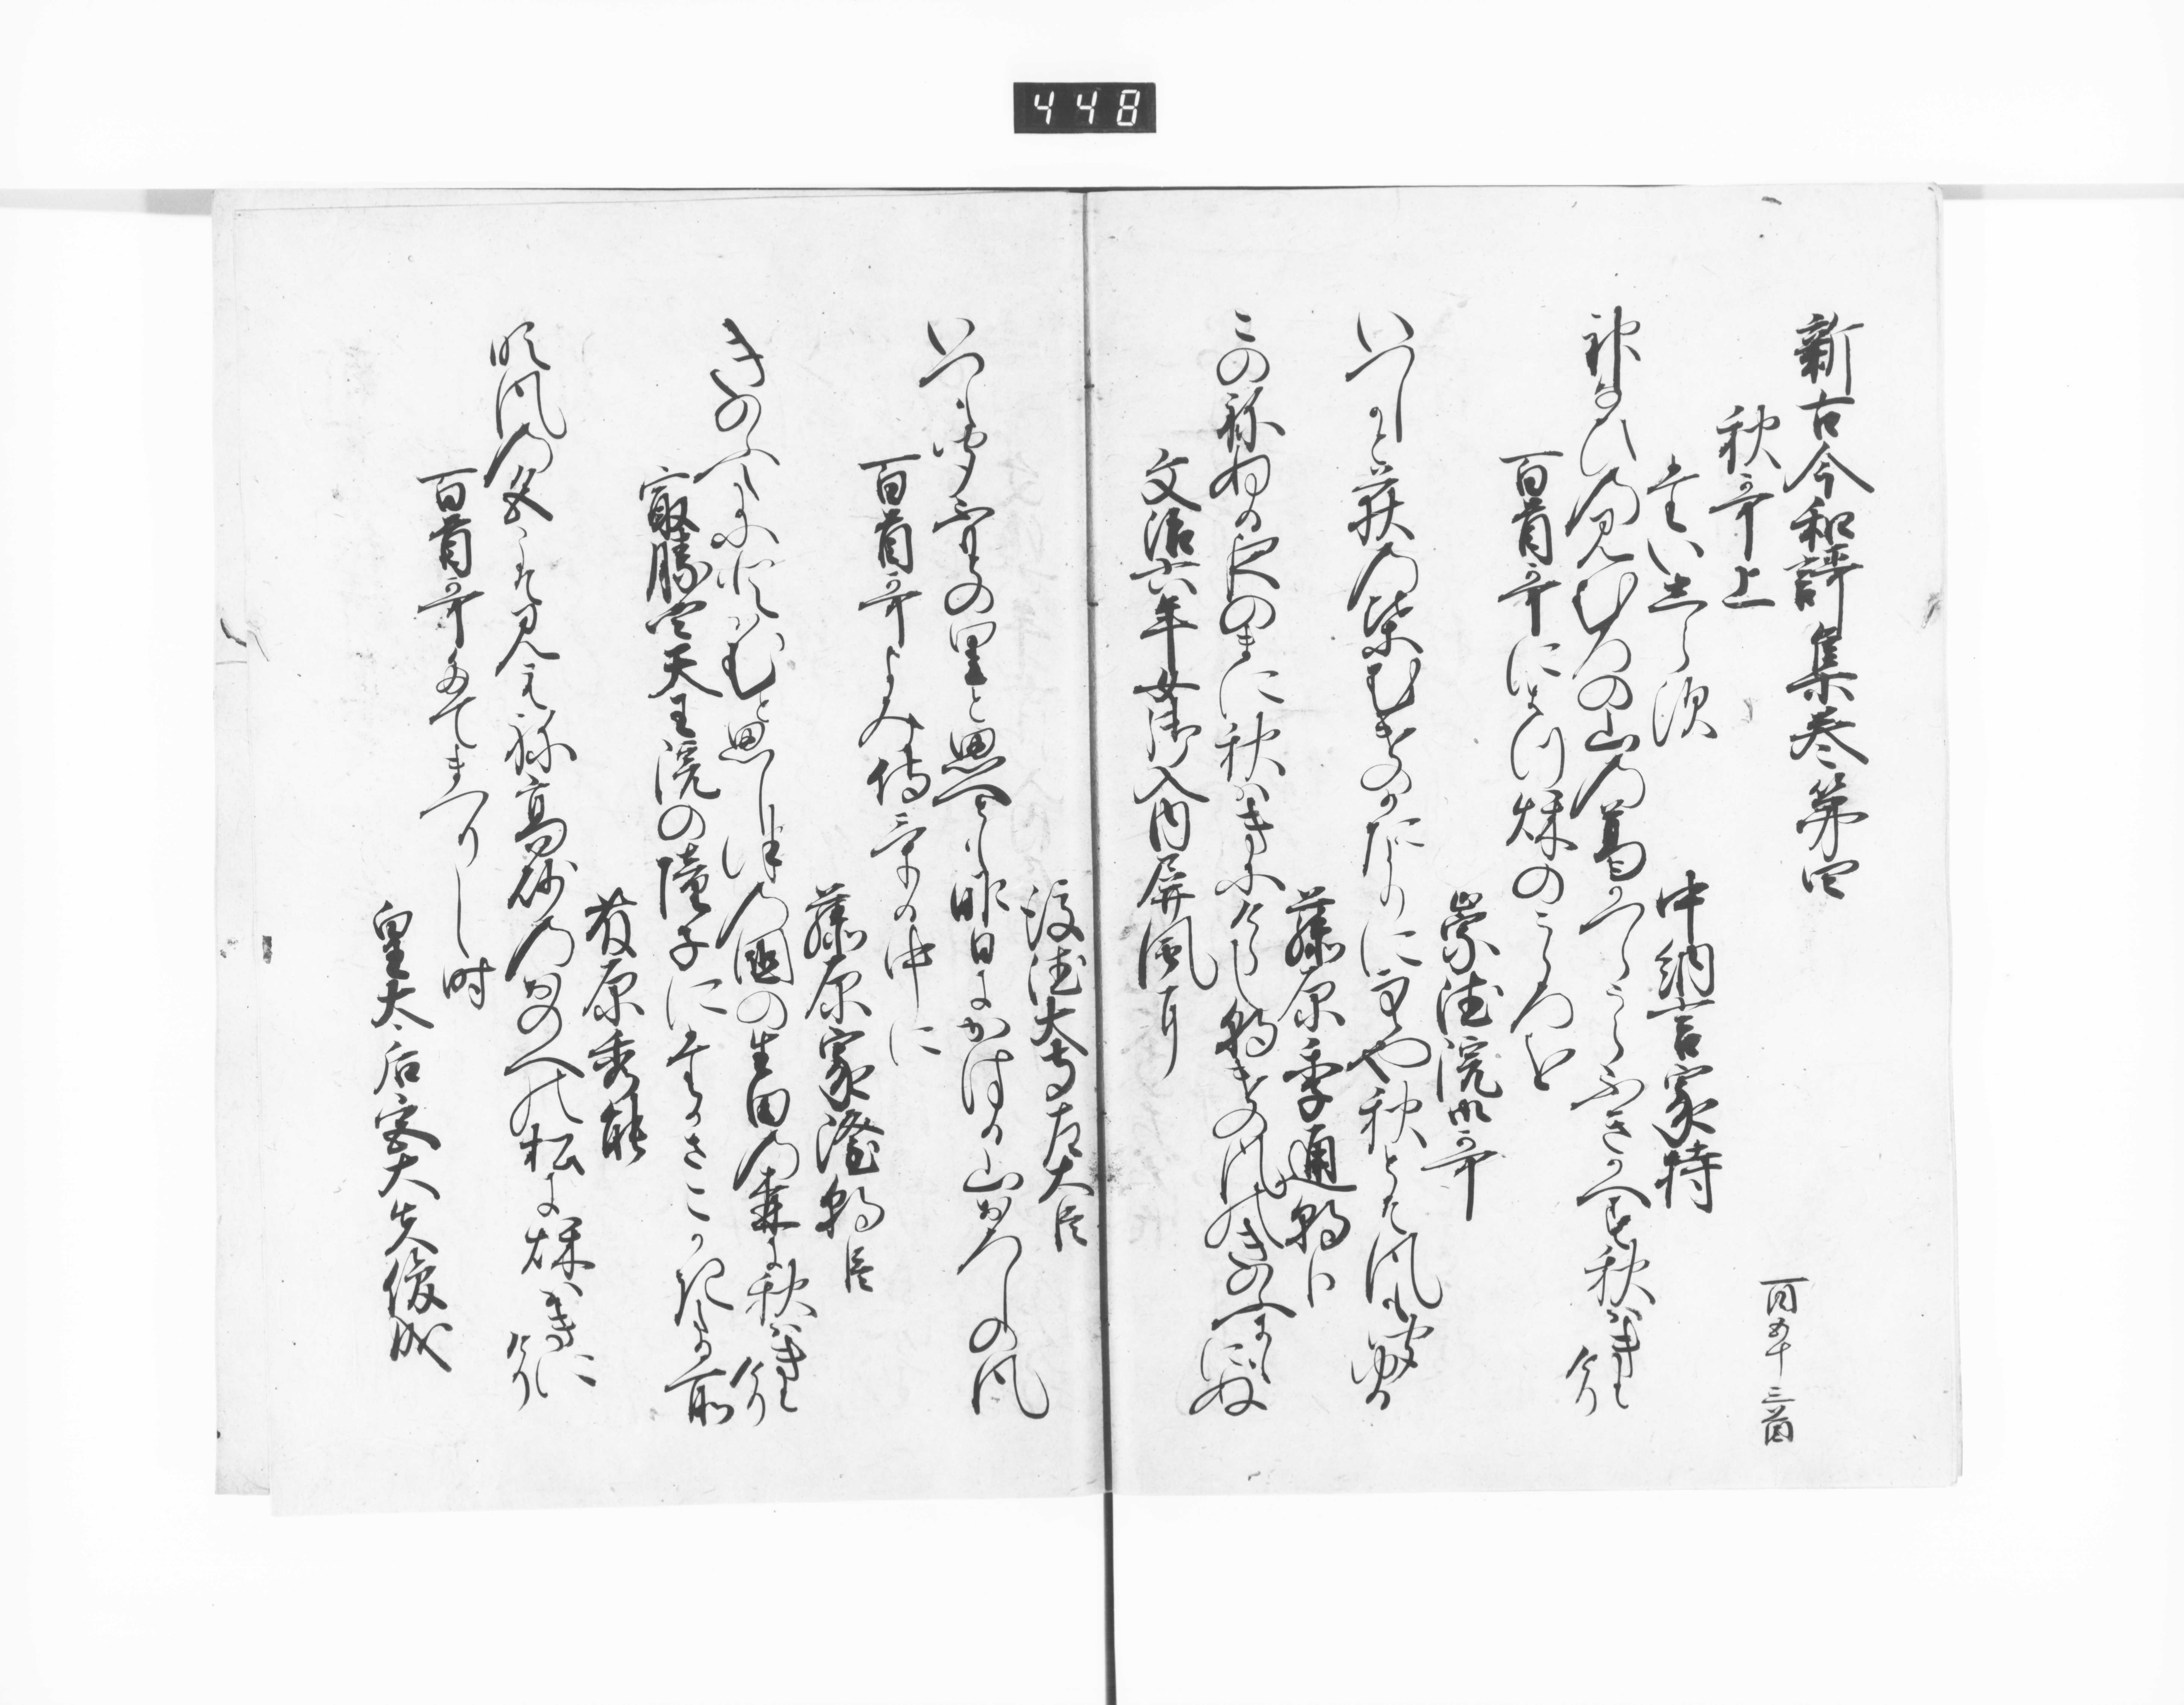 448
新古今和謌集巻第四
百五十三首
秋哥上
題しらす
中納言家持
神なひのみむろの山の葛かつらうら吹かへす秋はきにけり
百首哥に初秋のこゝろを
崇徳院御哥
いつしかと荻の葉むけのかたよりにそゝや秋とそ風も聞ゆる
藤原季通朝臣
この祢ぬる夜のまに秋はきにけらし朝けの風のきのふにもにぬ
文治六年女御入内屏風に
後徳大寺左大臣
いつも聞ふもとの里と思へとも昨日にかはる山おろしの風
百首哥よみ侍ける中に
藤原家隆朝臣
きのふたにとはむと思し津の國の生田の森に秋はきにけり
最勝四天王院の障子にたかさこかきたる所
藤原秀能
吹風の色こそ見えね高砂のおのへの松に秋はきにけり
百首哥たてまつりし時
皇太后宮大夫俊成